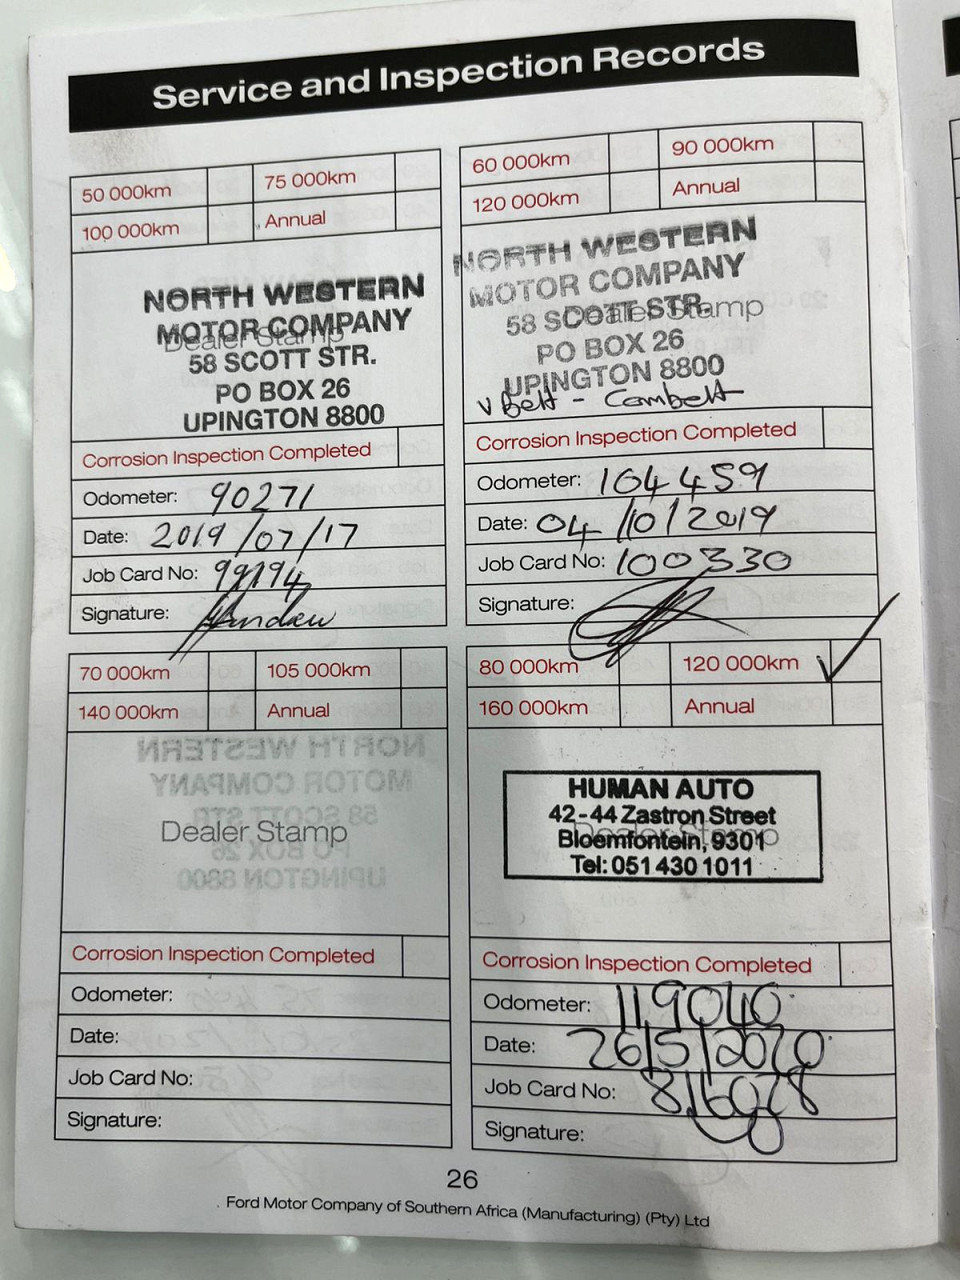 Service and Inspection Records
50 000km 75 000km
100 000km Annual
NORTH WESTERN
MOTOR COMPANY
Dealer Stamp
58 SCOTT STR.
PO BOX 26
UPINGTON 8800
Corrosion Inspection Completed
Odometer: 90271
Date: 2019/07/17
Job Card No: 99194
Signature:
60 000km 90 000km
120 000km Annual
NORTH WESTERN
MOTOR COMPANY
58 SCOTT STR.
Dealer Stamp
PO BOX 26
UPINGTON 8800
V Belt - Cambelt
Corrosion Inspection Completed
Odometer: 104459
Date: 04/10/2019
Job Card No: 100330
Signature:
70 000km 105 000km
140 000km Annual
Dealer Stamp
Corrosion Inspection Completed
Odometer:
Date:
Job Card No:
Signature:
80 000km 120 000km
160 000km Annual
HUMAN AUTO
42-44 Zastron Street
Dealer Stamp
Bloemfontein, 9301
Tel: 051 430 1011
Corrosion Inspection Completed
Odometer: 119040
Date: 26/5/2020
Job Card No:
Signature:
26
Ford Motor Company of Southern Africa (Manufacturing) (Pty) Ltd